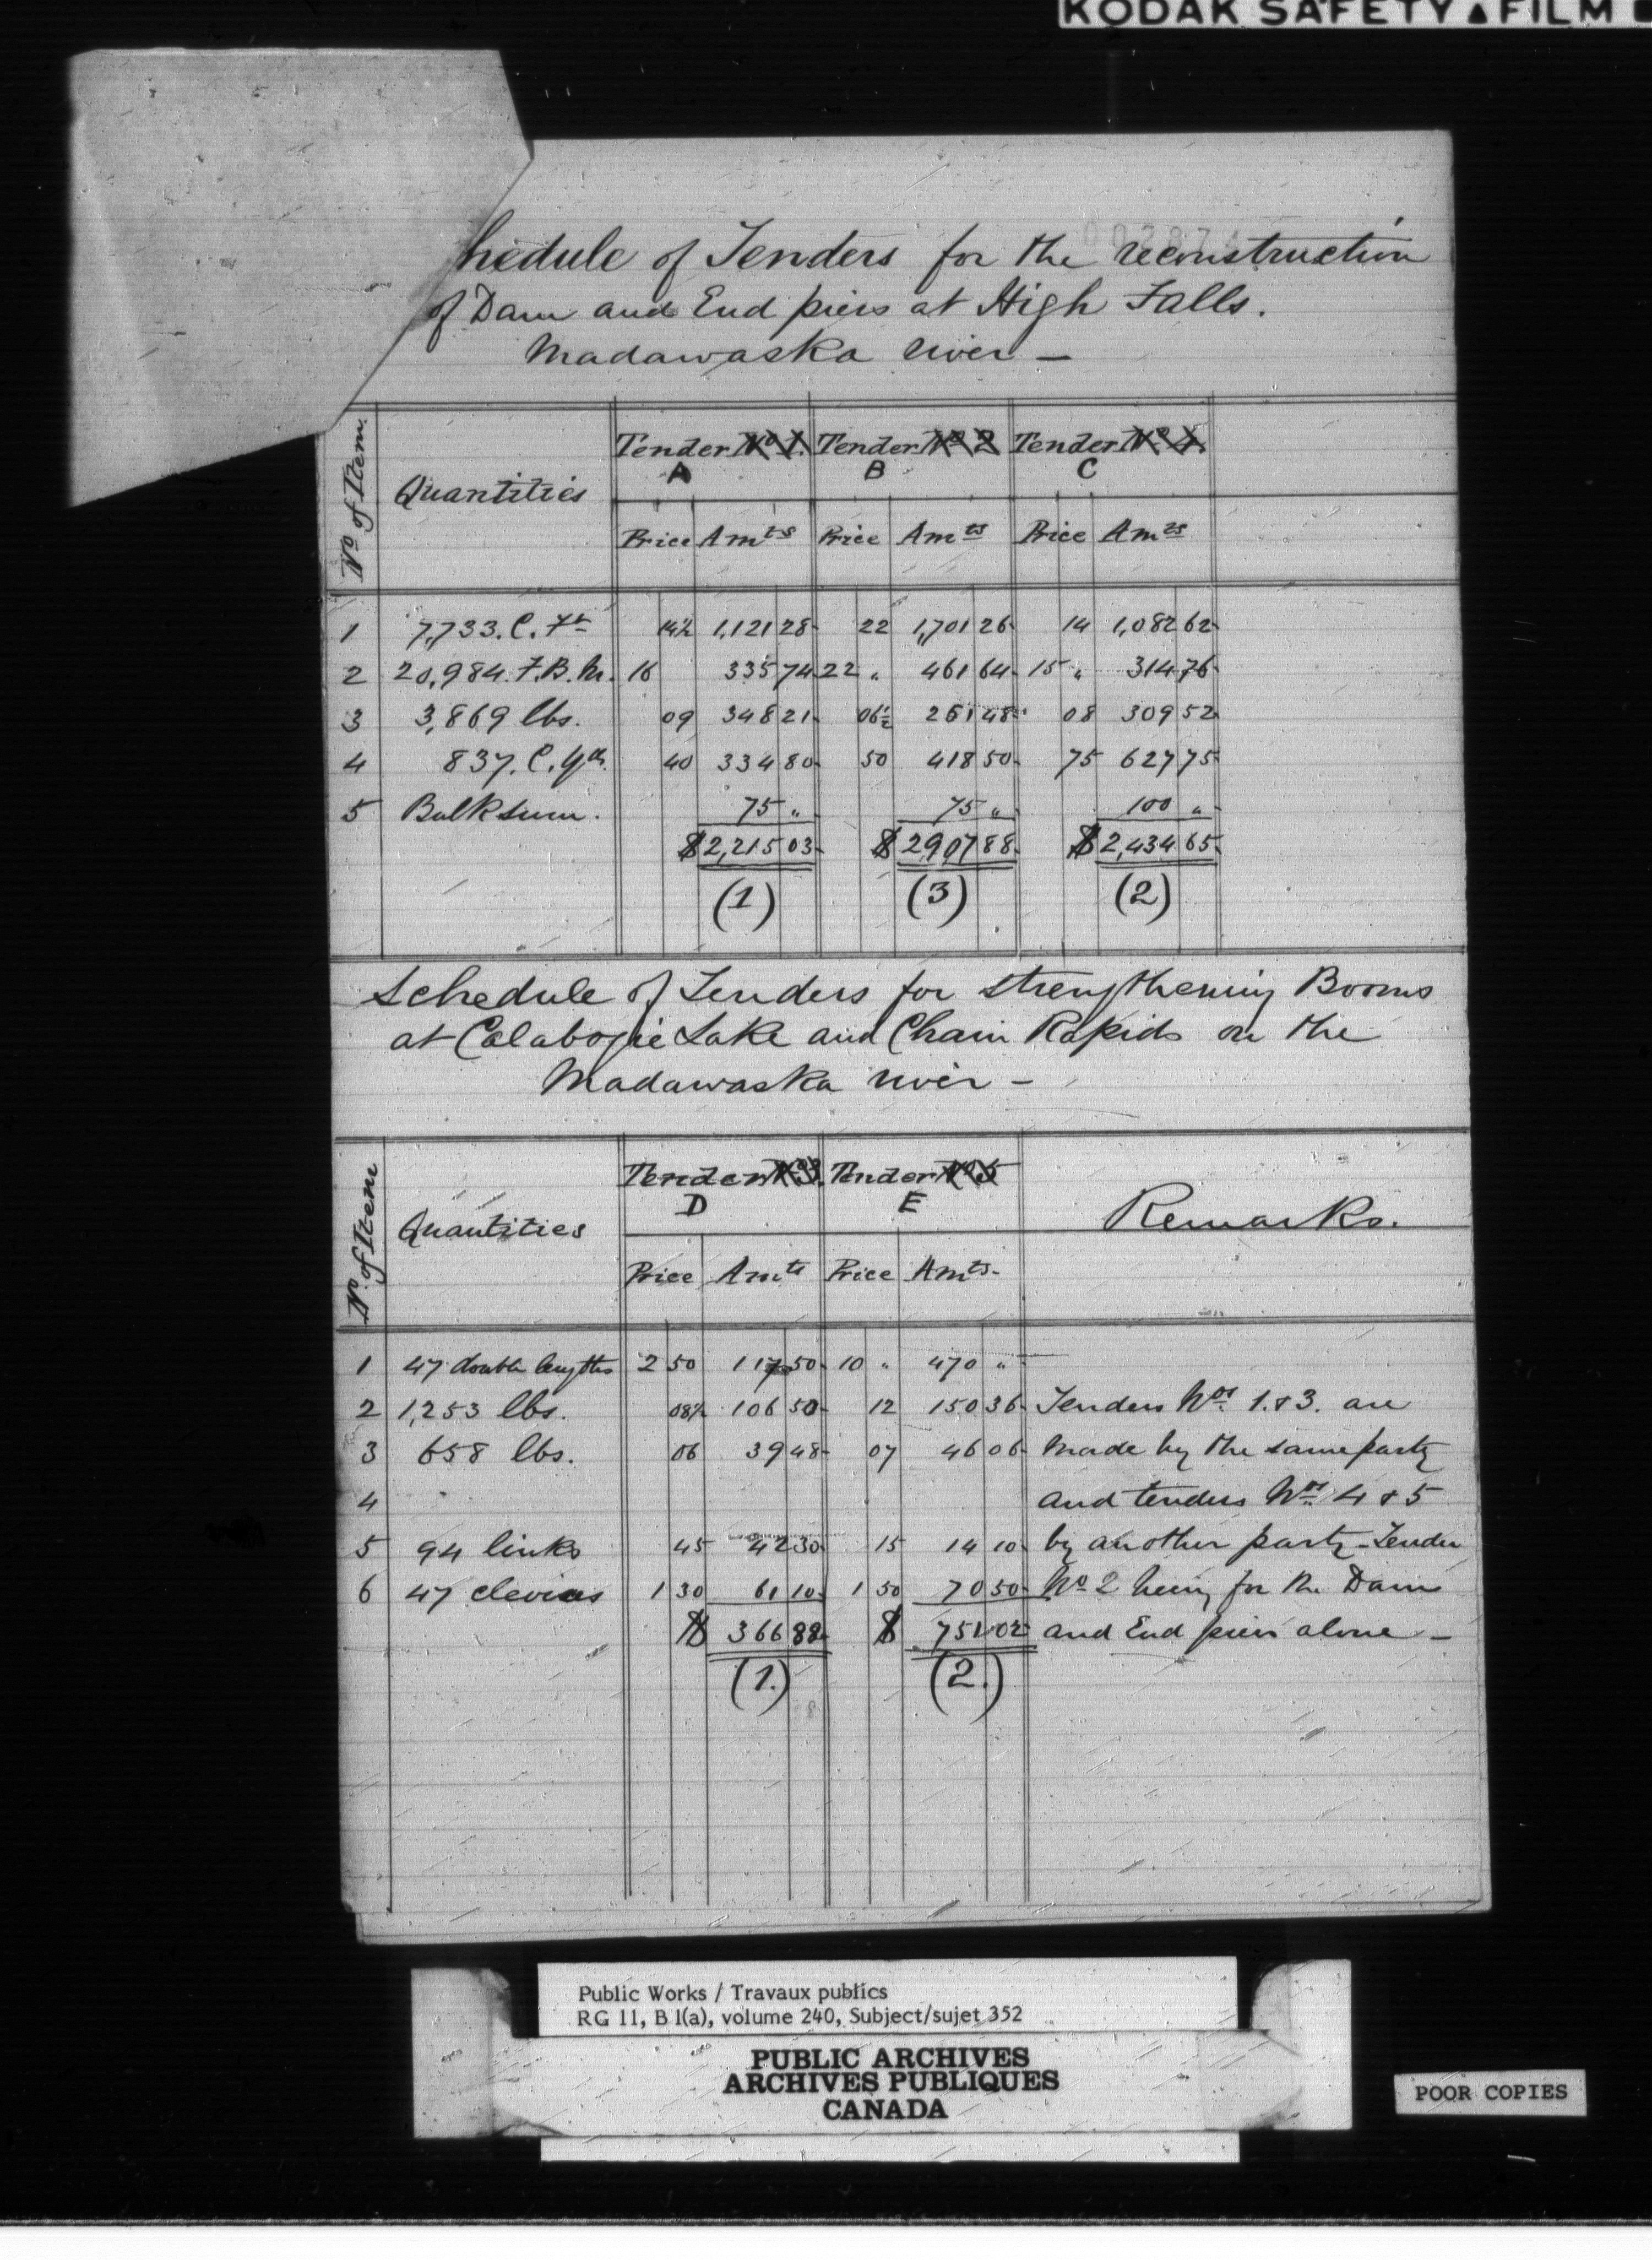 KODAK SAFETY ▲ FILM
hedule of Tenders for the reconstruction
of Dam and End piers at High Falls.
Madawaska river —
No of Item. Quantities Tender No 1. A Tender No 2 B Tender No 4. C
Price Amts Price Amts Price Amts
1 7,733. C. Ft 14½ 1,121 28 22 1,701 26 14 1,082 62
2 20,984. F.B.M. 16 335 74 22 „ 461 64 15 „ 314 76
3 3,869 lbs. 09 348 21 06½ 251 48 08 309 52
4 837. C. Yds. 40 334 80 50 418 50 75 627 75
5 Bulksum. 75 „ 75 „ 100 „
$ 2,215 03 $ 2,907 88 $ 2,434 65
(1) (3) (2)
Schedule of Tenders for strengthening Booms
at Calabogie Lake and Chain Rapids on the
Madawaska river —
No of Item Quantities Tender No 3. D Tender No 5 E Remarks.
Price Amts Price Amts.
1 47 double lengths 2 50 117 50 10 „ 470 „
2 1,253 lbs. 08½ 106 50 12 150 36 Tenders Nos. 1. & 3. are
3 658 lbs. 06 39 48 07 46 06 made by the same party
4 and tenders Nos. 4 & 5
5 94 links 45 42 30 15 14 10 by another party - Tender
6 47 clevices 1 30 61 10 1 50 70 50 No 2 being for the Dam
$ 366 88 $ 751 02 and End piers alone —
(1.) (2.)
Public Works / Travaux publics
RG 11, B 1(a), volume 240, Subject/sujet 352
PUBLIC ARCHIVES
ARCHIVES PUBLIQUES
CANADA
POOR COPIES